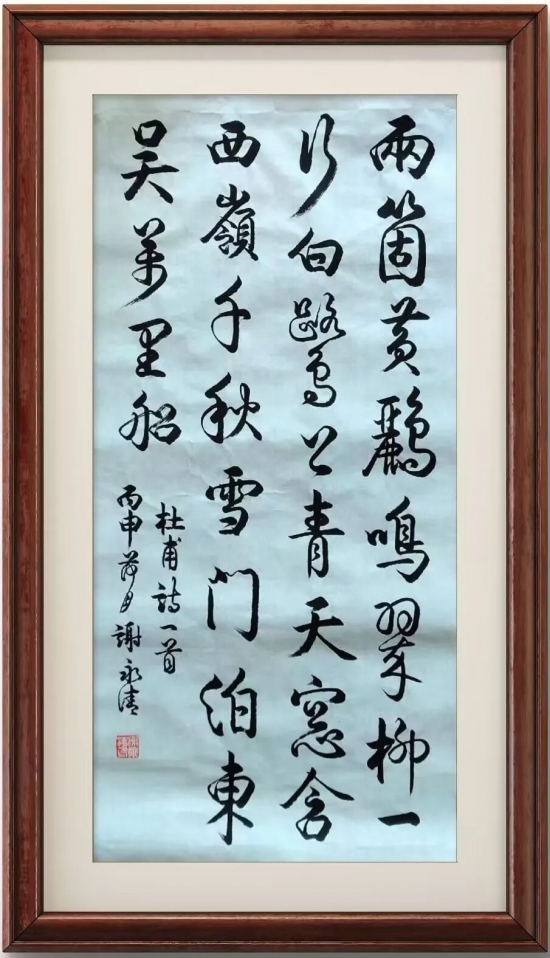 兩箇黃鸝鳴翠柳一
行白鷺上青天窓含
西嶺千秋雪門泊東
吴萬里船
杜甫詩一首
丙申 月 謝永清